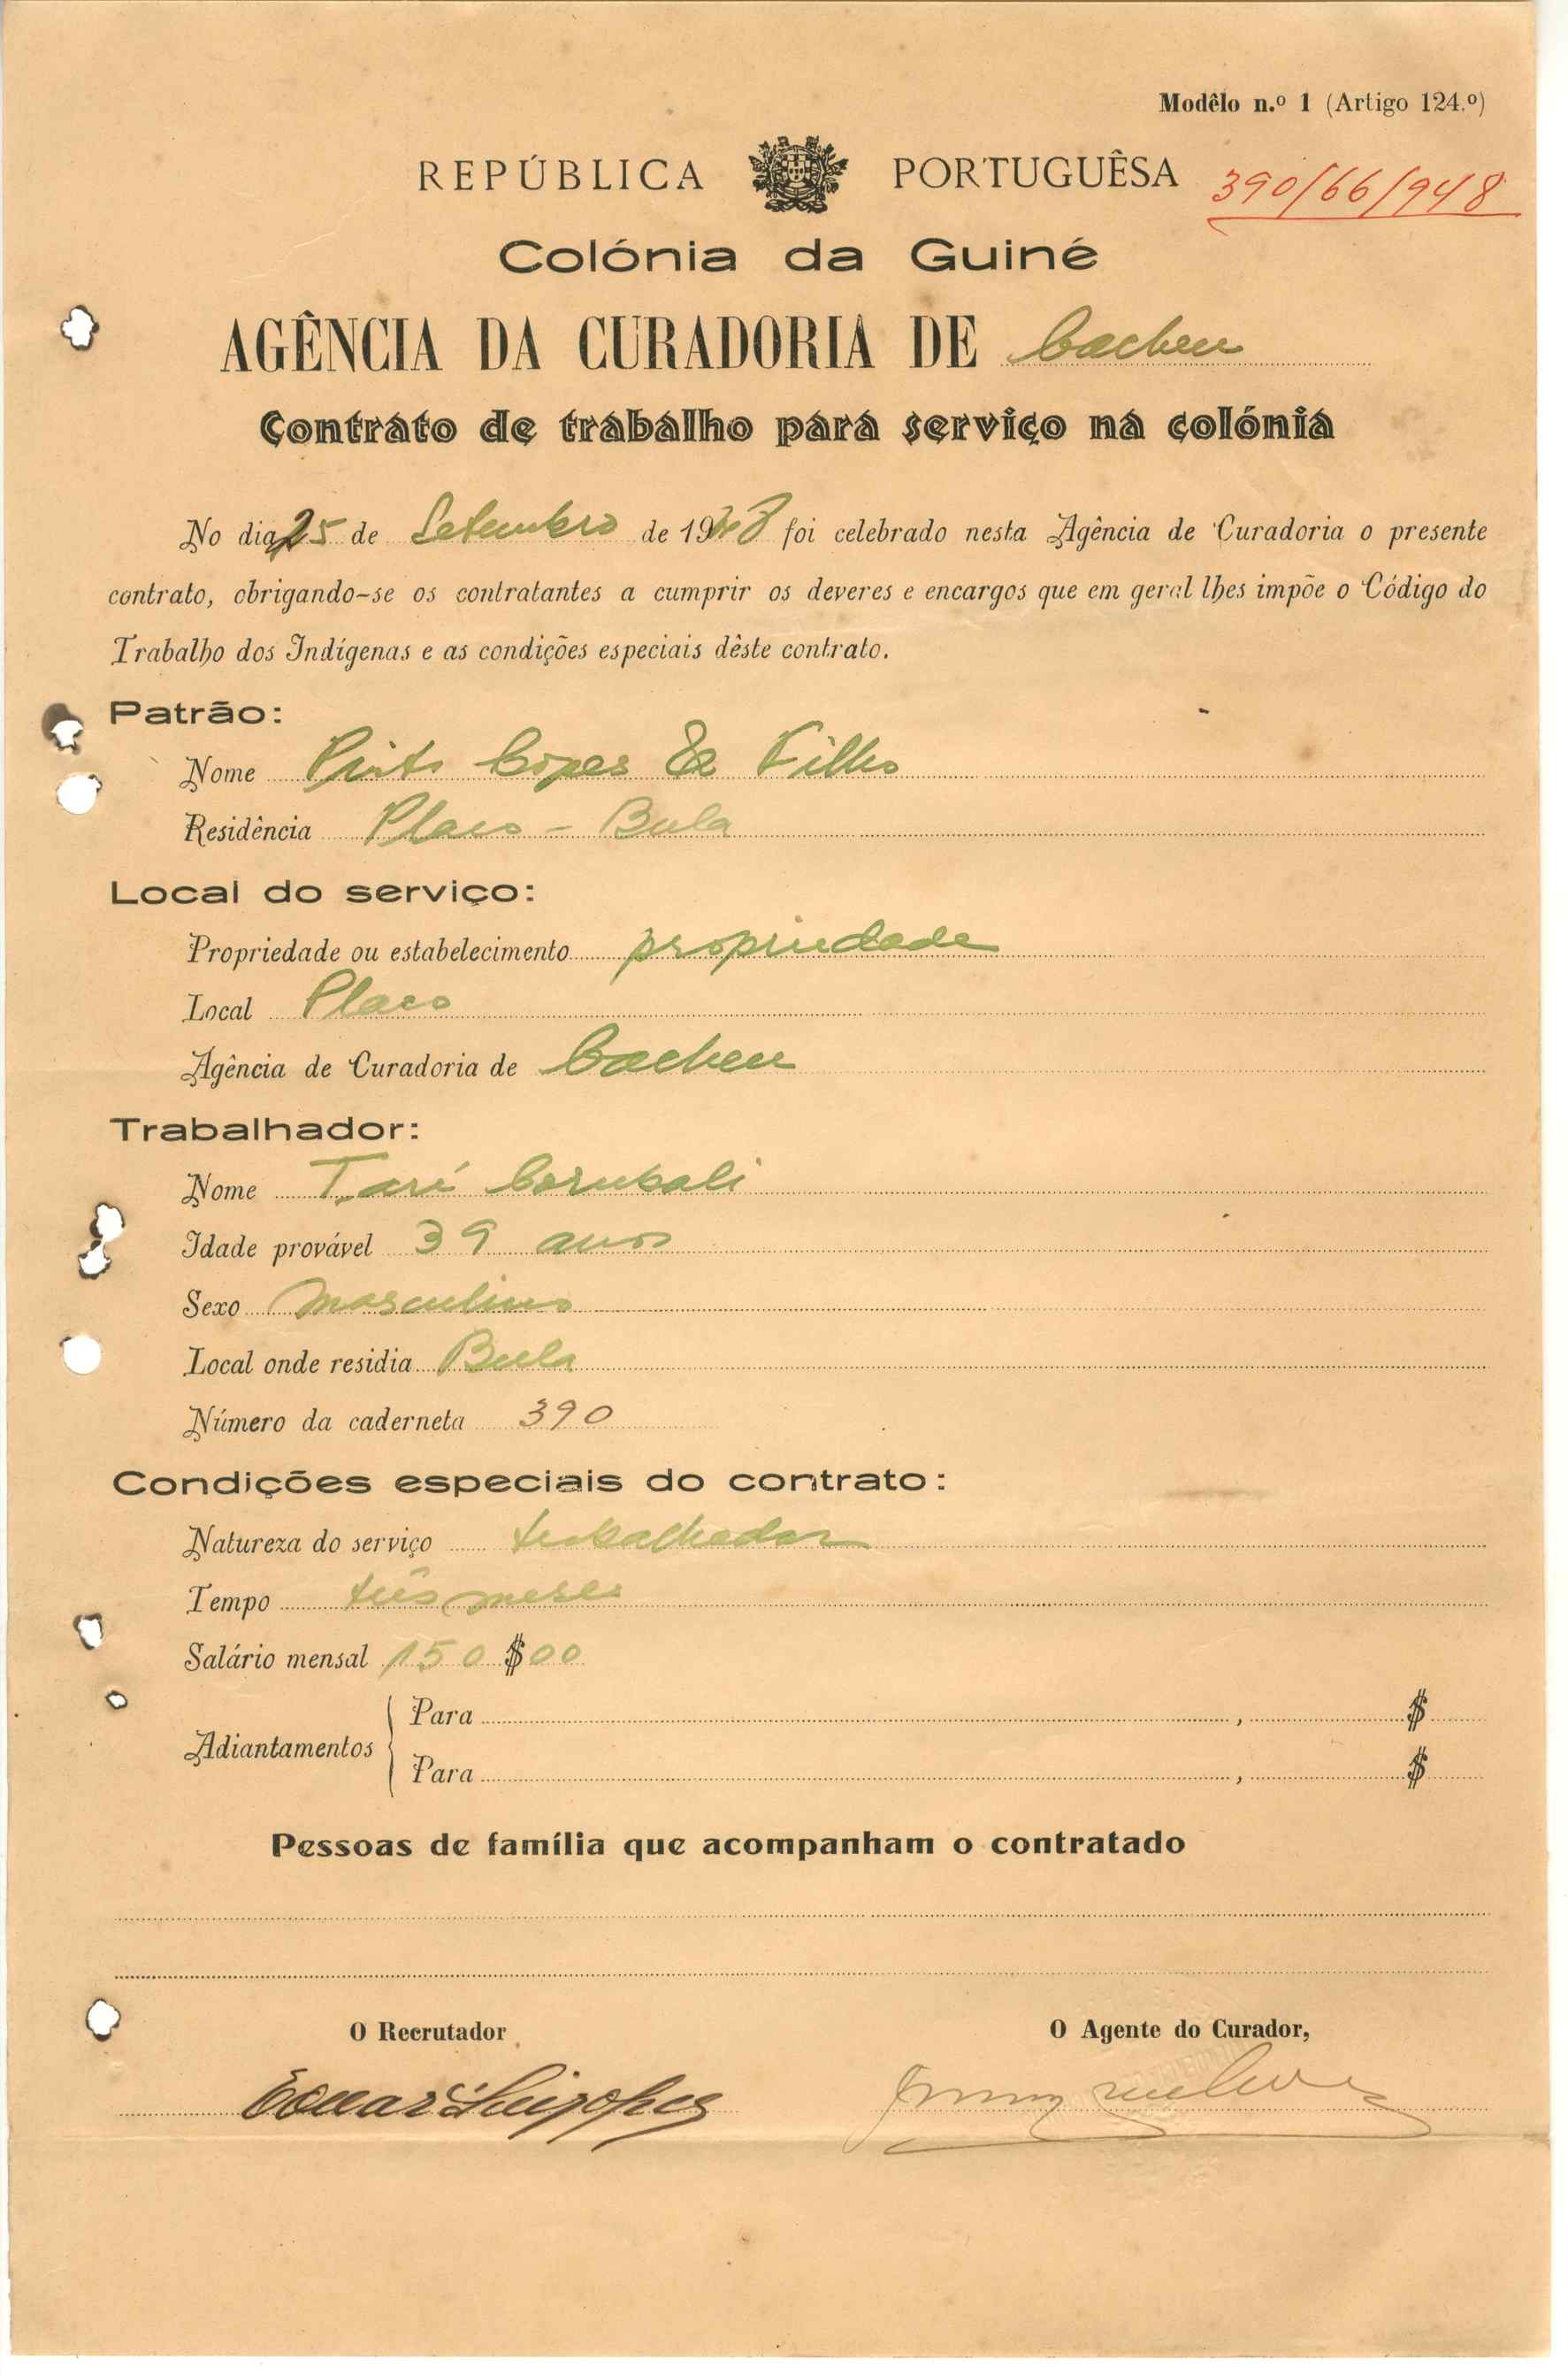 Modêlo n.º 1 (Artigo 124.º)
REPÚBLICA PORTUGUÊSA 390/66/948
Colónia da Guiné
AGÊNCIA DA CURADORIA DE Cacheu
Contrato de trabalho para serviço na colónia
No dia 25 de Setembro de 1948 foi celebrado nesta Agência de Curadoria o presente
contrato, obrigando-se os contratantes a cumprir os deveres e encargos que em geral lhes impõe o Código do
Trabalho dos Indígenas e as condições especiais dêste contrato.
Patrão:
Nome Pinto Lopes & Filho
Residência Placo - Bula
Local do serviço:
Propriedade ou estabelecimento propriedade
Local Placo
Agência de Curadoria de Cacheu
Trabalhador:
Nome Tare Corubali
Idade provável 39 anos
Sexo masculino
Local onde residia Bula
Número da caderneta 390
Condições especiais do contrato:
Natureza do serviço trabalhador
Tempo três meses
Salário mensal 150$00
Adiantamentos
Para , $
Para , $
Pessoas de família que acompanham o contratado
O Recrutador O Agente do Curador,